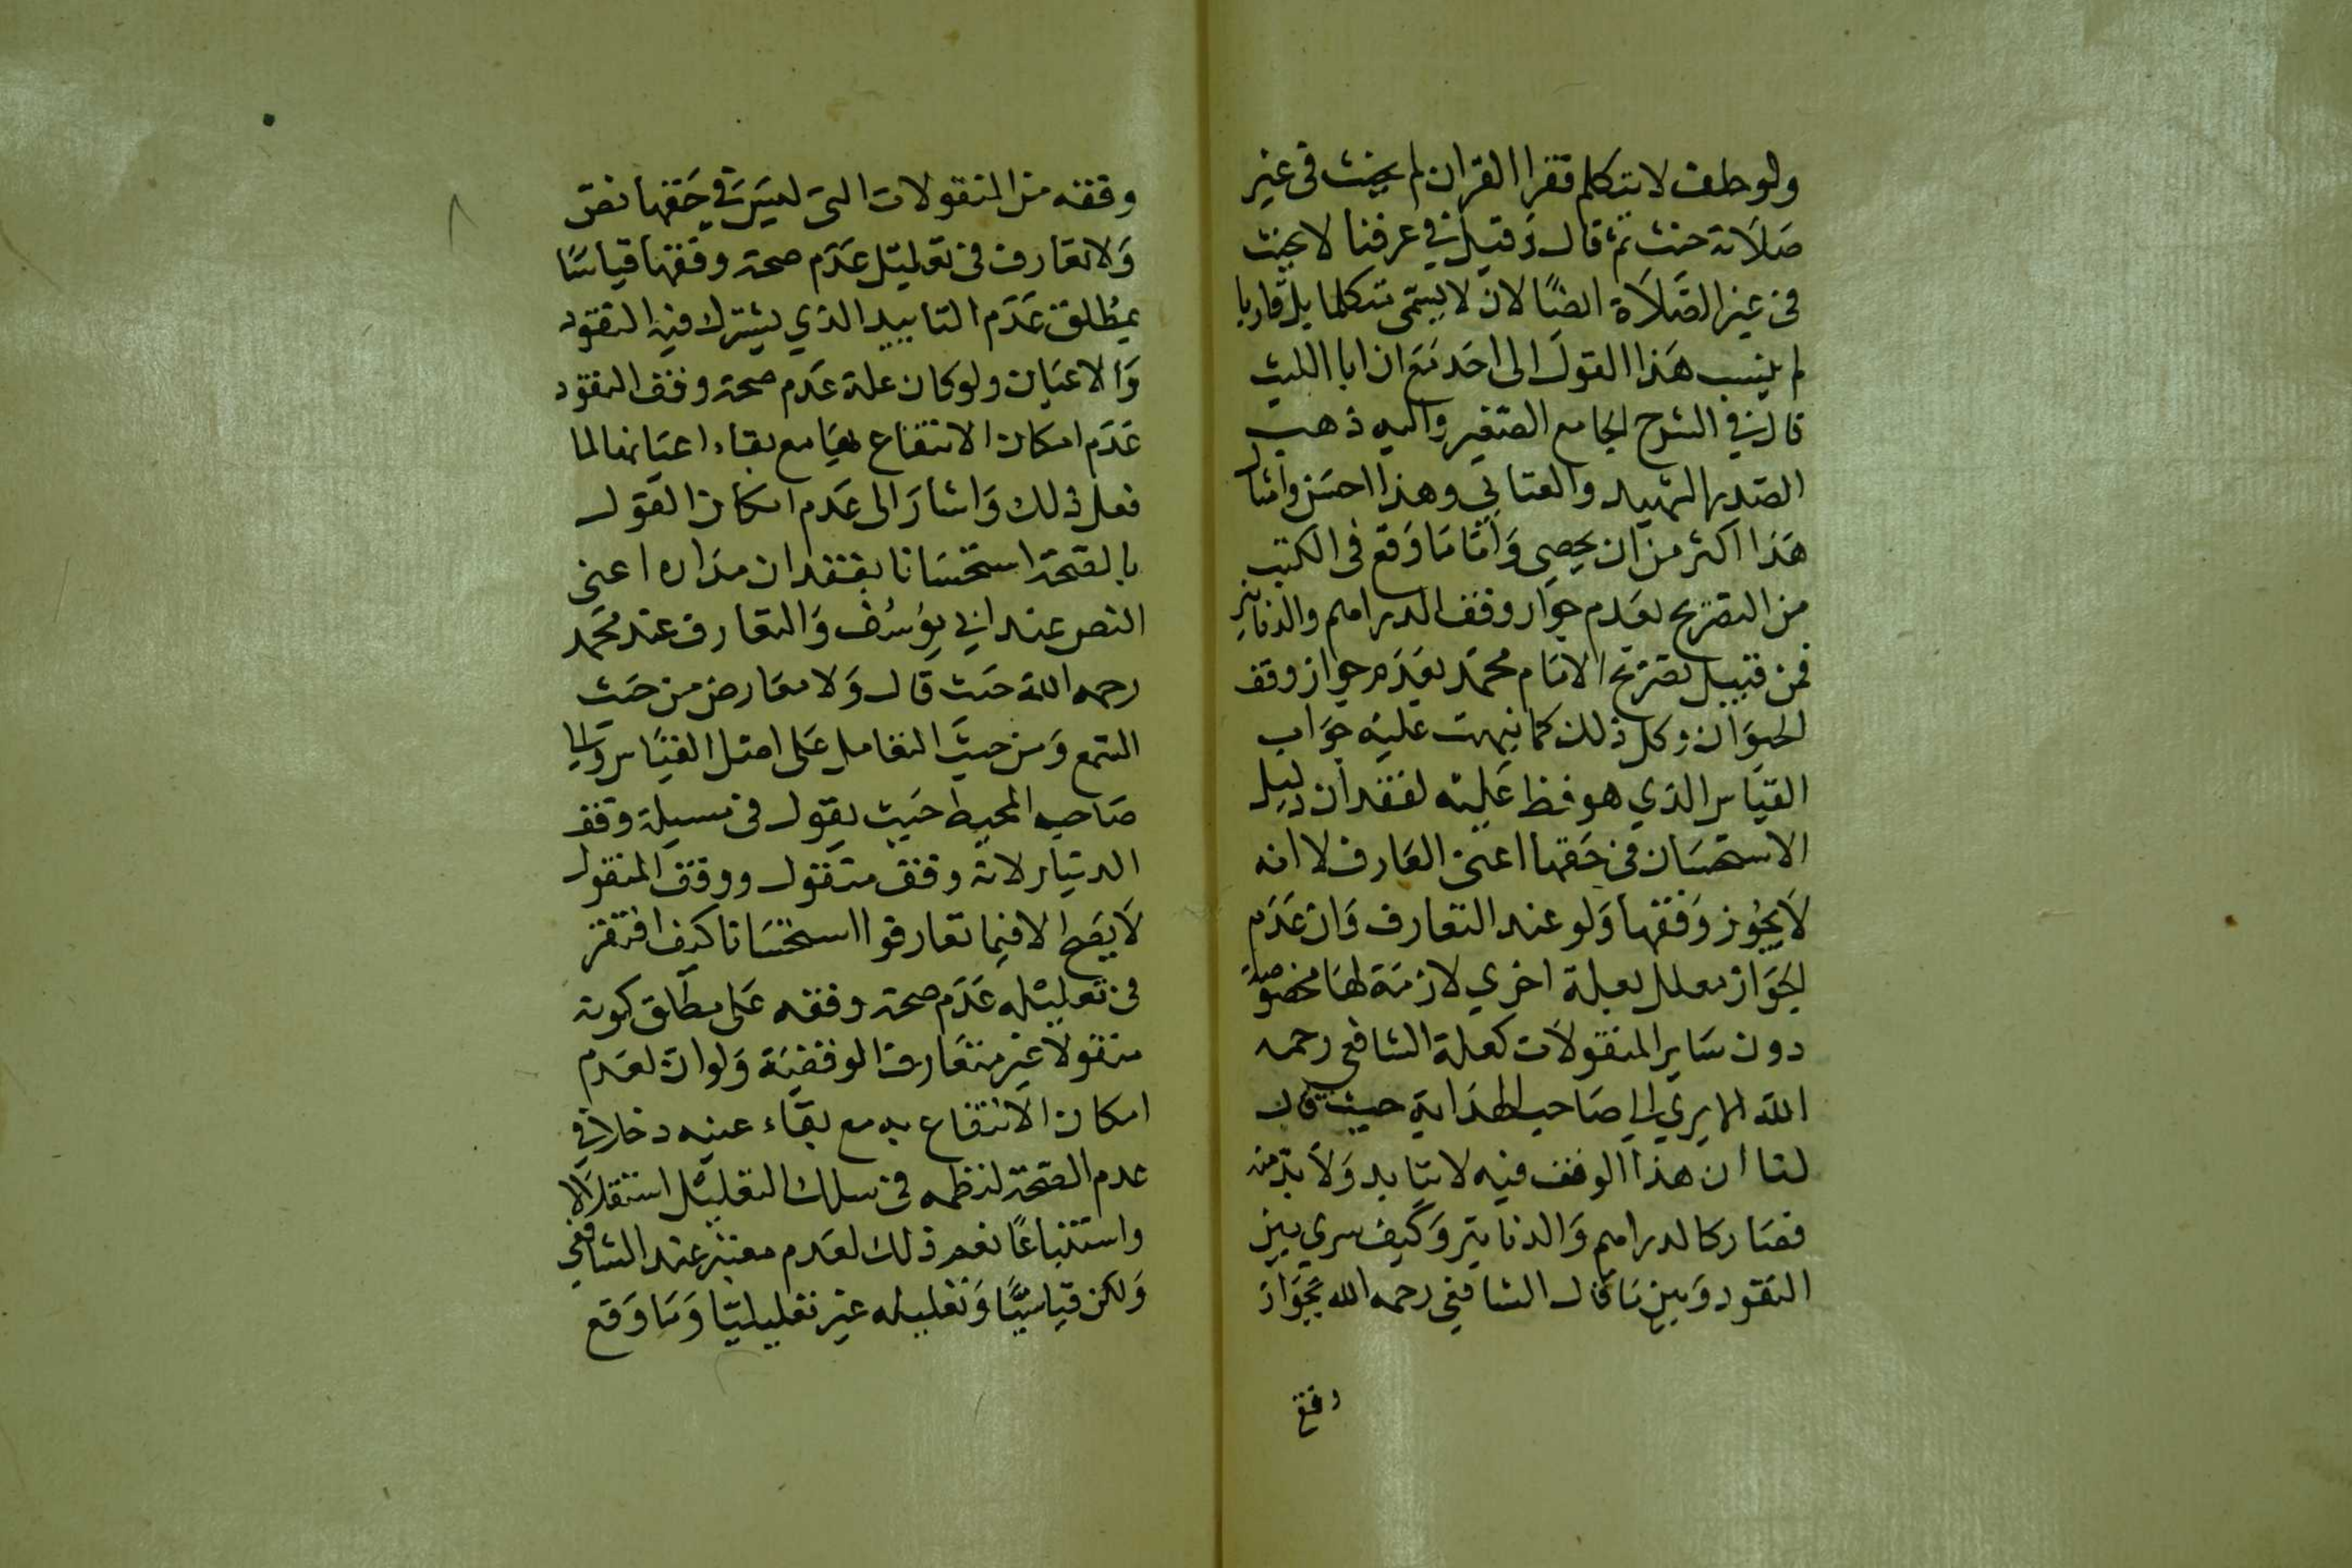 ولو حلف لا يتكلم فقرا القران لم يحنث فى غير
صلاته حنث ثم قال وقيل في عرفنا لا يحنث
فى غير الصلاة ايضًا لانه لا يسمى متكلما بل قاريا
لم ينسب هذا القول الى احد مع ان ابا الليث
قال في الشرح الجامع الصغير واليه ذهب
الصدر الشهيد والعتابي وهذا احسن وامثال
هذا اكثر من ان يحصى وَامّا مَا وَقع فى الكتب
من التصريح بعدم جواز وقف الدراهم والدنانير
فمن قبيل تصريح الامام محمد بعدم جواز وقف
الحيوان وكل ذلك كما نبهت عليه جواب
القياس الذي هو فظ عليه لفقدان دليل
الاستحسان فى حقها اعنى التعارف لا انه
لا يجوز وقفها وَلو عند التعارف وَان عَدَم
الجواز معلل بعلة اخري لازمة لها مخصوصة
دون سَاير المنقولات كعلة الشافعي رحمه
الله الا يري الي صَاحب الهداية حيث قال
لنا ان هذا الوقف فيه لا يتابد وَلا بدّ منه
فصَار كالدراهم وَالدنانير وَكيف سري بين
النقود وَبين مَا قال الشافعي رحمه الله بجواز
وقفه
وقفه من المنقولات التى ليسَ في حَقها نص
وَلا تعارف فى تعليل عَدَم صحة وقفها قياسًا
بمطلق عَدَم التابيد الذي يشترك فيه النقود
وَالاعيان ولو كان علة عدم صحة وقف النقود
عَدَم امكان الانتفاع بها مع بقاء اعيانها لما
فعل ذلك وَاشار الى عَدم امكان القول
بالصحة استحسَانا بفقدان مداره اعنى
النص عند ابي يوسف وَالتعارف عند محمد
رحمه الله حيث قال وَلا معارض من حيث
السمع وَمن حيث التعامل عَلى اصل القياس والي
صَاحب المحيط حيث يقول فى مسيلة وقف
الدينار لانه وقف منقول ووقف المنقول
لا يصح الا فيما تعارفوا استحسَانا كيف اقتصر
فى تعليله عَدَم صحة وقفه عَلى مطلق كونه
منقولا غير متعارف الوقفية وَلو ان لعَدم
امكان الانتفاع به مع بقاء عينه دخلا في
عدم الصحة لنظمه فى سلك التعليل استقلالا
واستتباعًا نعم ذلك لعدم معتبر عند الشافعي
وَلكن قياسيًّا وَتعليله غير تعليليّا وَمَا وَقع